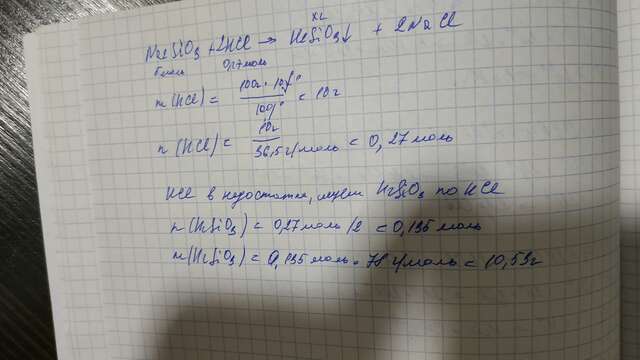 х г
Na2SiO3 + 2HCl → H2SiO3↓ + 2NaCl
0,27 моль
m(HCl) = 100г · 10% / 100% = 10г
n(HCl) = 10г / 36,5 г/моль = 0,27 моль
HCl в недостатке, ищем H2SiO3 по HCl
n(H2SiO3) = 0,27 моль /2 = 0,135 моль
m(H2SiO3) = 0,135 моль · 78 г/моль = 10,53г